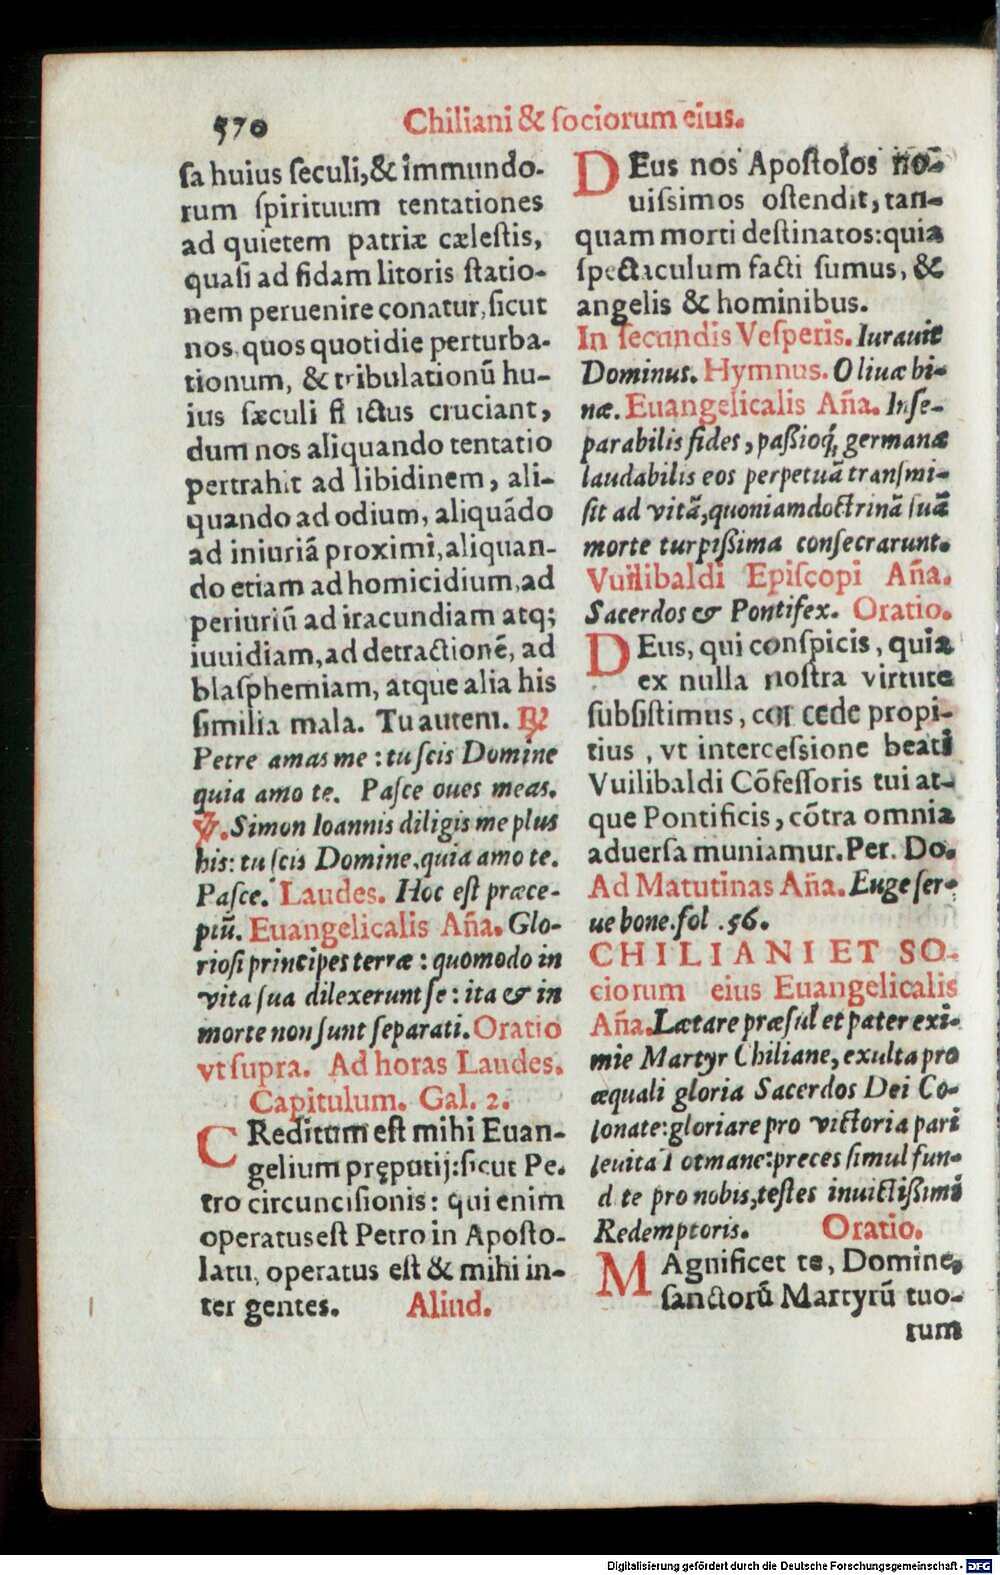 570
Chiliani & sociorum eius.
sa huius seculi, & immundo-
rum spirituum tentationes
ad quietem patriæ cælestis,
quasi ad fidam litoris statio-
nem peruenire conatur, sicut
nos quos quotidie perturba-
tionum, & tribulationũ hu-
ius sæculi fluctus cruciant,
dum nos aliquando tentatio
pertrahit ad libidinem, ali-
quando ad odium, aliquãdo
ad iniuriã proximi, aliquan-
do etiam ad homicidium, ad
periuriũ ad iracundiam atq;
iuuidiam, ad detractionẽ, ad
blasphemiam, atque alia his
similia mala. Tu autem. ℟
Petre amas me : tu scis Domine
quia amo te. Pasce oues meas.
℣. Simon Ioannis diligis me plus
his: tu scis Domine, quia amo te.
Pasce. Laudes. Hoc est præce-
ptũ. Euangelicalis Aña. Glo-
riosi principes terræ : quomodo in
vita sua dilexerunt se : ita & in
morte non sunt separati. Oratio
vt supra. Ad horas Laudes.
Capitulum. Gal. 2.
CReditum est mihi Euan-
gelium pręputij: sicut Pe-
tro circuncisionis : qui enim
operatus est Petro in Aposto-
latu, operatus est & mihi in-
ter gentes. Aliud.
DEus nos Apostolos no-
uissimos ostendit, tan-
quam morti destinatos: quia
spectaculum facti sumus, &
angelis & hominibus.
In secundis Vesperis. Iurauit
Dominus. Hymnus. O liuæ bi-
næ. Euangelicalis Aña. Inse-
parabilis fides, paßioq́; germanæ
laudabilis eos perpetuã transmi-
sit ad vitã, quoniam doctrinã suã
morte turpißima consecrarunt.
Vuilibaldi Episcopi Aña.
Sacerdos & Pontifex. Oratio.
DEus, qui conspicis, quia
ex nulla nostra virtute
subsistimus, concede propi-
tius , vt intercessione beati
Vuilibaldi Cõfessoris tui at-
que Pontificis, cõtra omnia
aduersa muniamur. Per. Do.
Ad Matutinas Aña. Euge ser-
ue bone. fol .56.
CHILIANI ET SO-
ciorum eius Euangelicalis
Aña. Lætare præsul et pater exi-
mie Martyr Chiliane, exulta pro
æquali gloria Sacerdos Dei Co-
lonate: gloriare pro victoria pari
leuita Totmane: preces simul fun-
dite pro nobis, testes inuictißimi
Redemptoris. Oratio.
MAgnificet te, Domine,
sanctorũ Martyrũ tuo-
rum
Digitalisierung gefördert durch die Deutsche Forschungsgemeinschaft - DFG